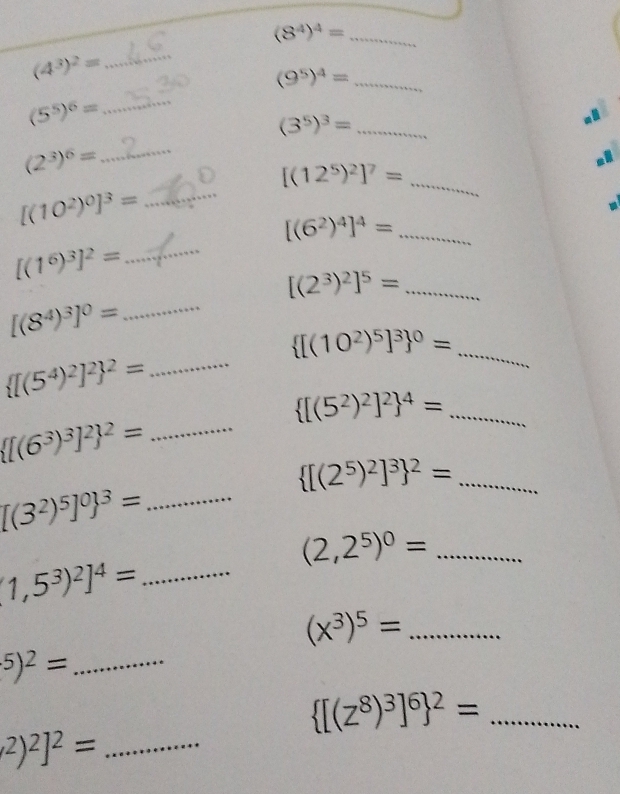 (4³)² = ............
(5⁵)⁶ = ............ 30
(2³)⁶ = ............ 2
[(10²)⁰]³ = ............
[(1⁶)³]² = ............ 1
[(8⁴)³]⁰ = ............
{[(5⁴)²]²}² = ............
{[(6³)³]²}² = ............
[(3²)⁵]⁰}³ = ............
(1,5³)²]⁴ = ............
⁵)² = ............
²)²]² = ............
(8⁴)⁴ = ............
(9⁵)⁴ = ............
(3⁵)³ = ............
[(12⁵)²]⁷ = ............
[(6²)⁴]⁴ = ............
[(2³)²]⁵ = ............
{[(10²)⁵]³}⁰ = ............
{[(5²)²]²}⁴ = ............
{[(2⁵)²]³}² = ............
(2,2⁵)⁰ = ............
(x³)⁵ = ............
{[(z⁸)³]⁶}² = ............